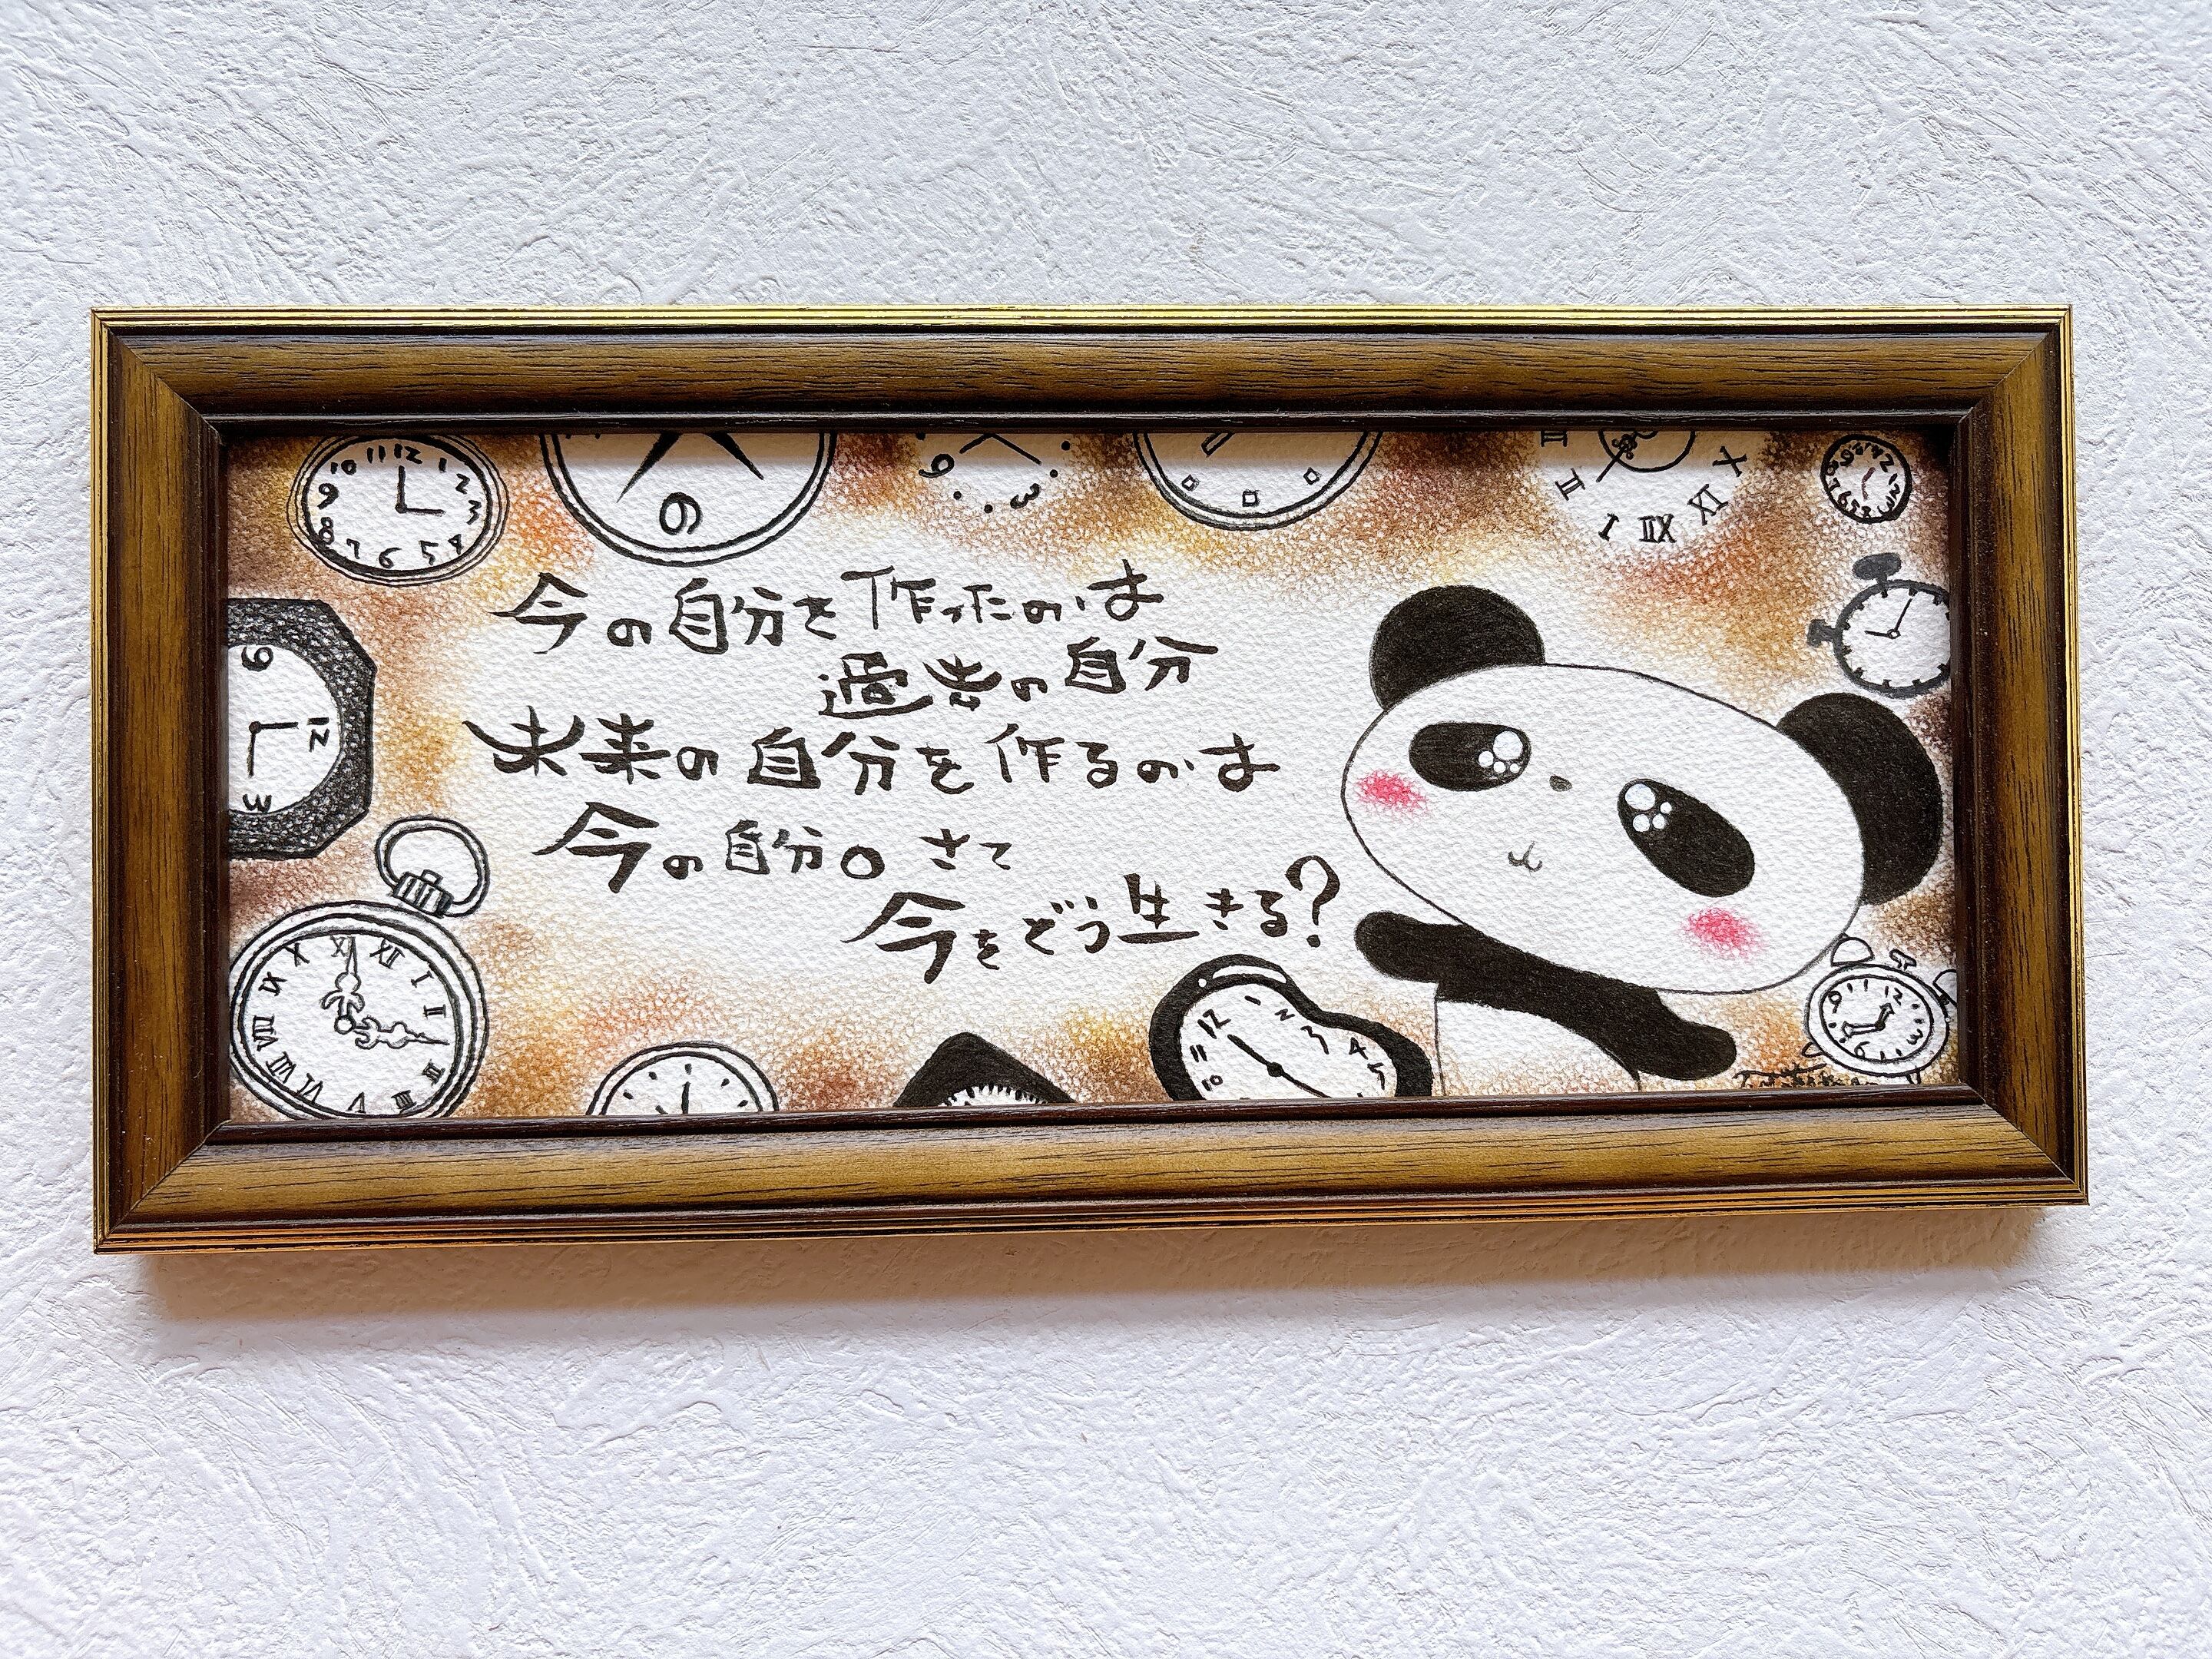 今の自分を作ったのは
過去の自分
未来の自分を作るのは
今の自分。さて
今をどう生きる?